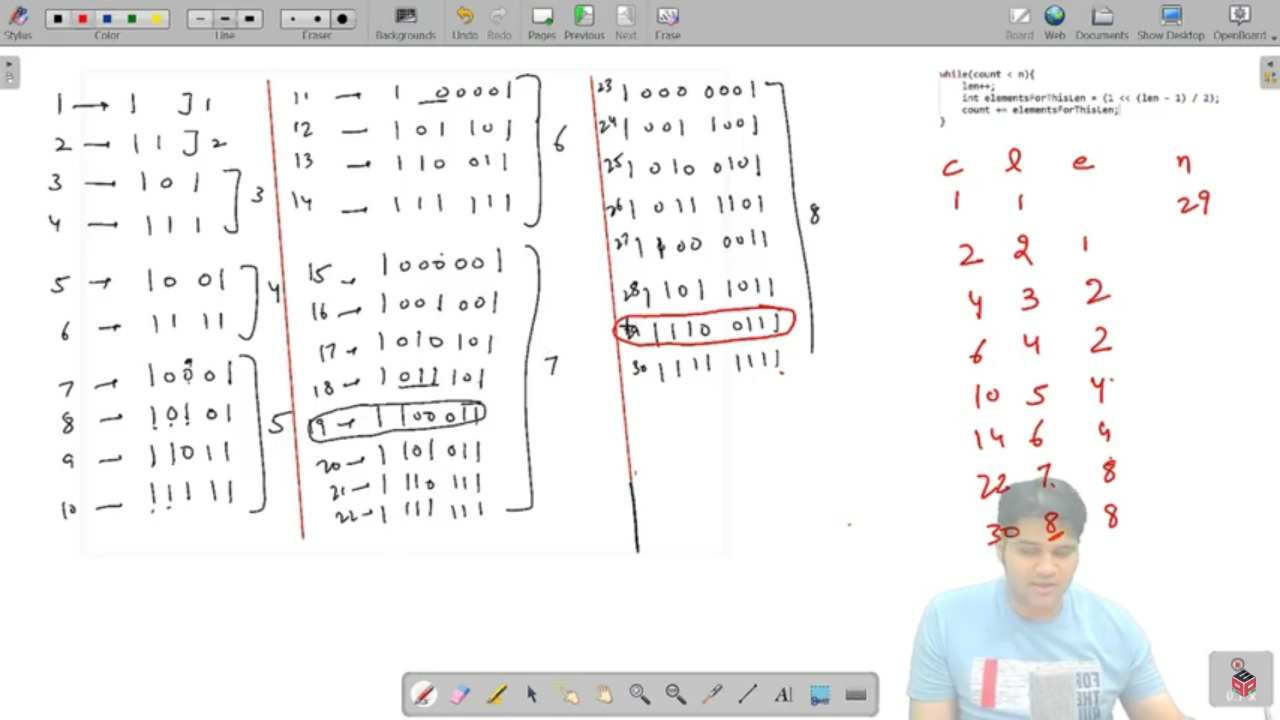 Stylus
Color
Line
Eraser
Backgrounds
Undo
Redo
Pages
Previous
Next
Erase
Board
Web
Documents
Show Desktop
OpenBoard
1 → 1 ] 1
2 → 1 1 ] 2
3 → 1 0 1
4 → 1 1 1
3
5 → 1 0 0 1
6 → 1 1 1 1
4
7 → 1 0 0 0 1
8 → 1 0 1 0 1
9 → 1 1 0 1 1
10 → 1 1 1 1 1
5
11 → 1 0 0 0 0 1
12 → 1 0 1 1 0 1
13 → 1 1 0 0 1 1
14 → 1 1 1 1 1 1
6
15 → 1 0 0 0 0 0 1
16 → 1 0 0 1 0 0 1
17 → 1 0 1 0 1 0 1
18 → 1 0 1 1 1 0 1
19 → 1 1 0 0 0 1 1
20 → 1 1 0 1 0 1 1
21 → 1 1 1 0 1 1 1
22 → 1 1 1 1 1 1 1
7
23 1 0 0 0 0 0 0 1
24 1 0 0 1 1 0 0 1
25 1 0 1 0 0 1 0 1
26 1 0 1 1 1 1 0 1
27 1 1 0 0 0 0 1 1
28 1 1 0 1 1 0 1 1
29 1 1 1 0 0 1 1 1
30 1 1 1 1 1 1 1 1
8
while(count < n){
len++;
int elementsForThisLen = (1 << (len - 1) / 2);
count += elementsForThisLen;
}
c l e n
1 1 29
2 2 1
4 3 2
6 4 2
10 5 4
14 6 4
22 7 8
30 8 8